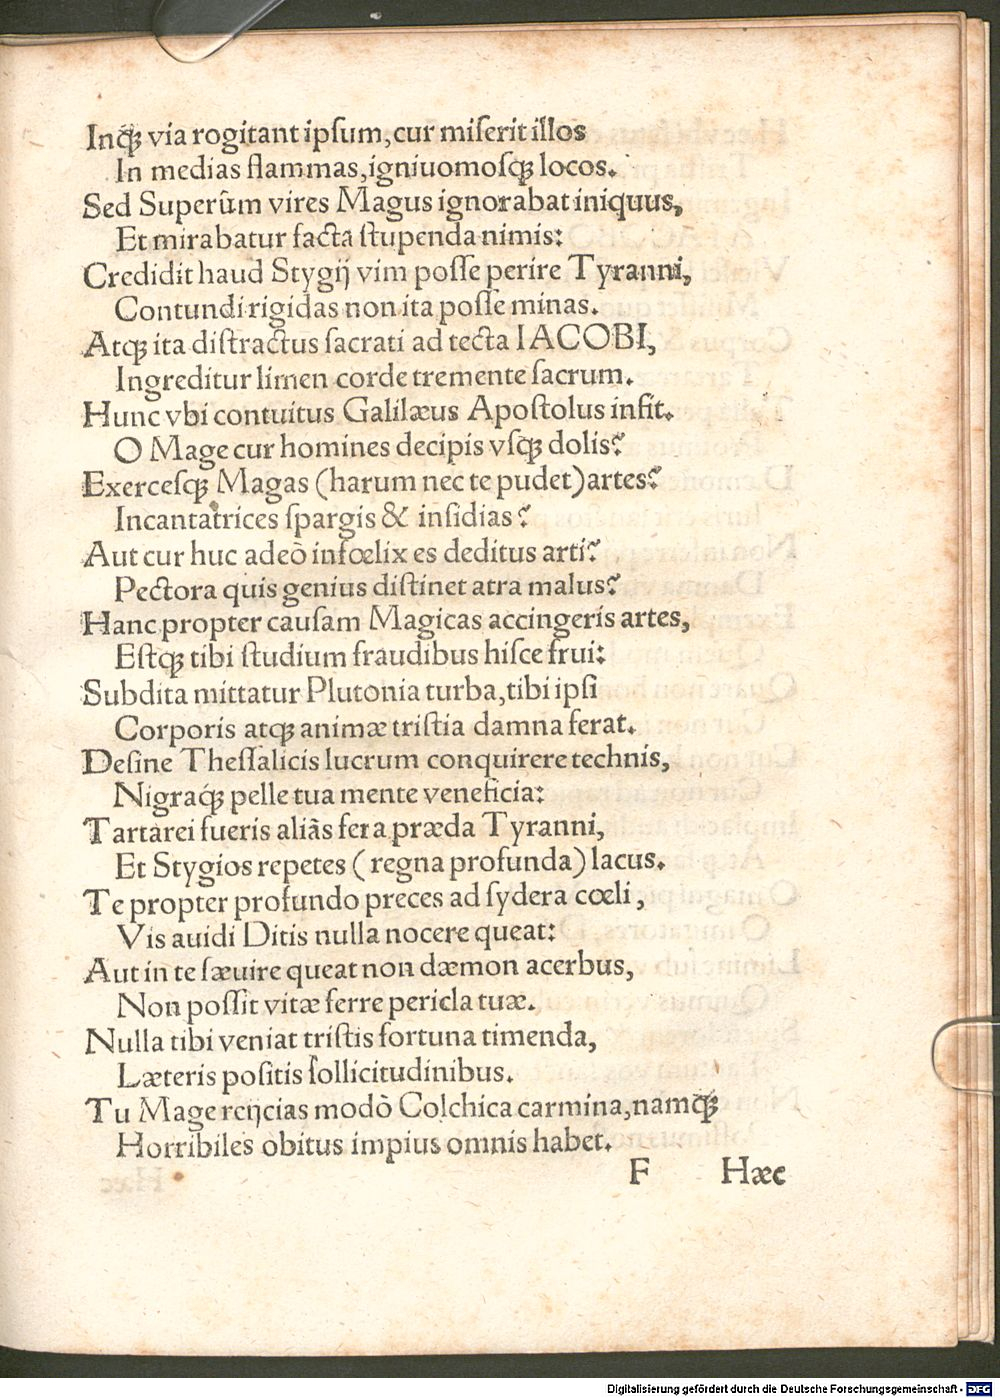 Inq́ꝫ via rogitant ipſum, cur miſerit illos
In medias flammas, igniuomoſqꝫ locos.
Sed Superûm vires Magus ignorabat iniquus,
Et mirabatur facta ſtupenda nimis:
Credidit haud Stygij vim poſſe perire Tyranni,
Contundi rigidas non ita poſſe minas.
Atqꝫ ita diſtractus ſacrati ad tecta IACOBI,
Ingreditur limen corde tremente ſacrum.
Hunc vbi contuitus Galilæus Apoſtolus infit.
O Mage cur homines decipis vſqꝫ dolis?
Exerceſqꝫ Magas (harum nec te pudet) artes?
Incantatrices ſpargis & inſidias?
Aut cur huc adeò infœlix es deditus arti?
Pectora quis genius diſtinet atra malus?
Hanc propter cauſam Magicas accingeris artes,
Eſtqꝫ tibi ſtudium fraudibus hiſce frui:
Subdita mittatur Plutonia turba, tibi ipſi
Corporis atqꝫ animæ triſtia damna ferat.
Deſine Theſſalicis lucrum conquirere technis,
Nigraq́ꝫ pelle tua mente veneficia:
Tartarei fueris aliàs fera præda Tyranni,
Et Stygios repetes (regna profunda) lacus.
Te propter profundo preces ad ſydera cœli,
Vis auidi Ditis nulla nocere queat:
Aut in te ſæuire queat non dæmon acerbus,
Non poſſit vitæ ferre pericla tuæ.
Nulla tibi veniat triſtis fortuna timenda,
Læteris poſitis ſollicitudinibus.
Tu Mage reijcias modò Colchica carmina, namq́ꝫ
Horribiles obitus impius omnis habet.
F Hæc
Digitalisierung gefördert durch die Deutsche Forschungsgemeinschaft - DFG